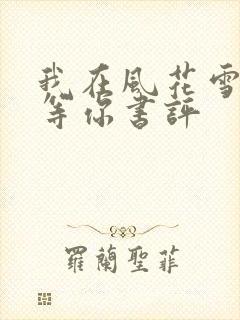 我在風花雪
等你書評
羅蘭聖菲